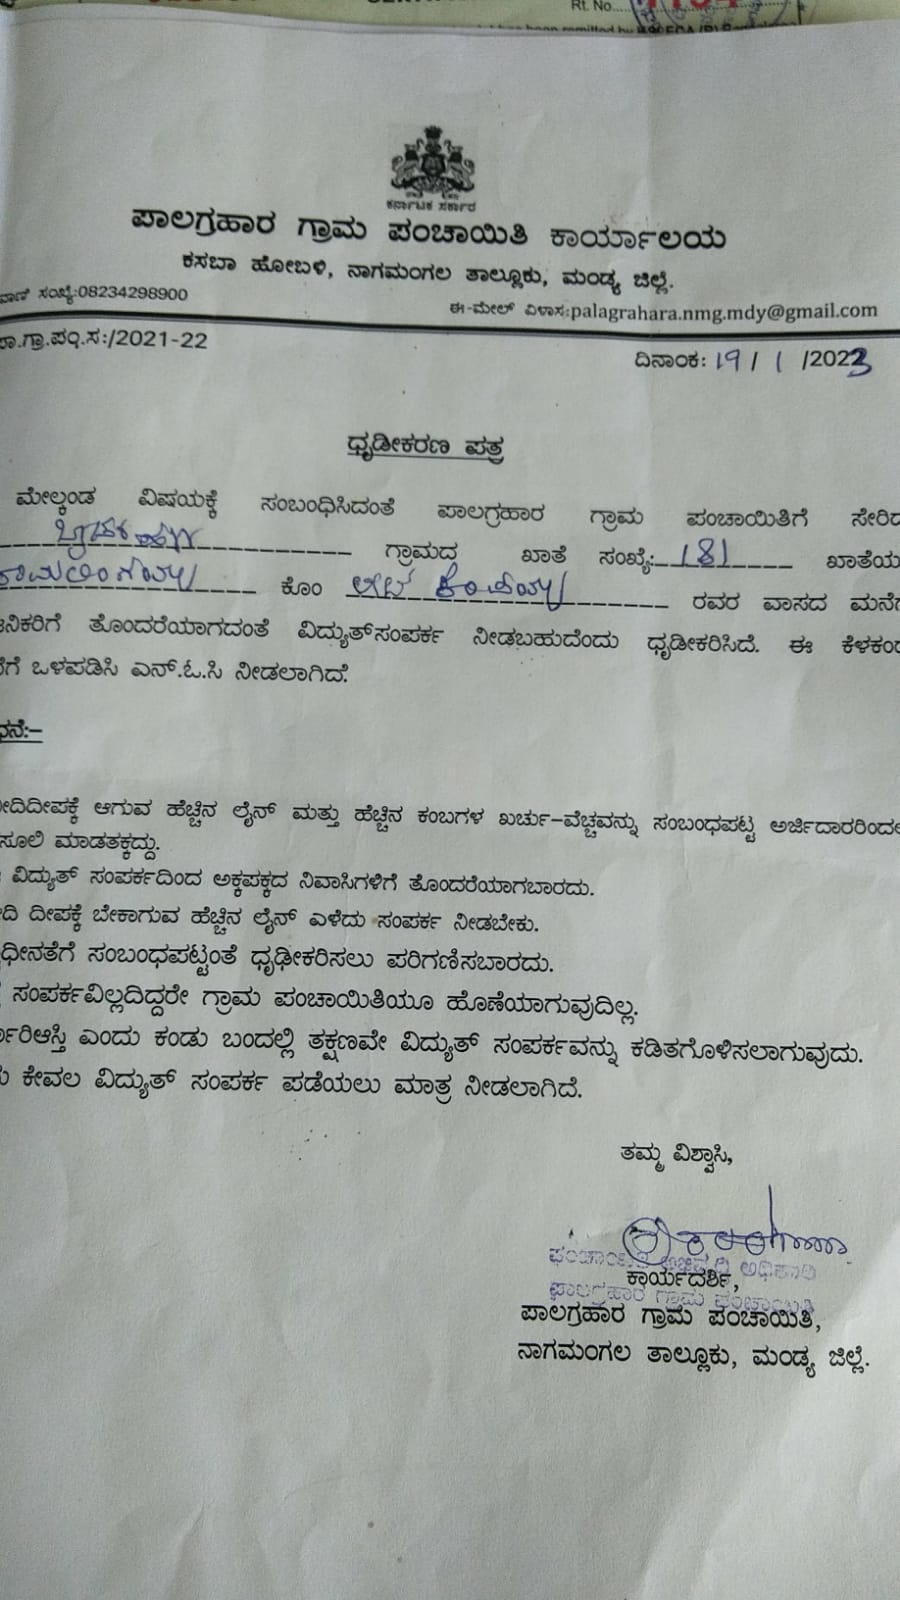 Rt. No.
ಕರ್ನಾಟಕ ಸರ್ಕಾರ
ಪಾಲಗ್ರಹಾರ ಗ್ರಾಮ ಪಂಚಾಯಿತಿ ಕಾರ್ಯಾಲಯ
ಕಸಬಾ ಹೋಬಳಿ, ನಾಗಮಂಗಲ ತಾಲ್ಲೂಕು, ಮಂಡ್ಯ ಜಿಲ್ಲೆ.
ವಾಣಿ ಸಂಖ್ಯೆ:08234298900
ಈ-ಮೇಲ್ ವಿಳಾಸ:palagrahara.nmg.mdy@gmail.com
ಪಾ.ಗ್ರಾ.ಪಂ.ಸ:/2021-22
ದಿನಾಂಕ: 19/ 1 /2023
ಧೃಡೀಕರಣ ಪತ್ರ
ಮೇಲ್ಕಂಡ ವಿಷಯಕ್ಕೆ ಸಂಬಂಧಿಸಿದಂತೆ ಪಾಲಗ್ರಹಾರ ಗ್ರಾಮ ಪಂಚಾಯಿತಿಗೆ ಸೇರಿದ
ಗ್ರಾಮದ ಖಾತೆ ಸಂಖ್ಯೆ: 181 ಖಾತೆಯ
ಕೋಂ ರವರ ವಾಸದ ಮನೆಗೆ
ನಿಕರಿಗೆ ತೊಂದರೆಯಾಗದಂತೆ ವಿದ್ಯುತ್‌ಸಂಪರ್ಕ ನೀಡಬಹುದೆಂದು ಧೃಡೀಕರಿಸಿದೆ. ಈ ಕೆಳಕಂಡ
ಗೆ ಒಳಪಡಿಸಿ ಎನ್.ಓ.ಸಿ ನೀಡಲಾಗಿದೆ.
ಧನೆ:–
ದಿದೀಪಕ್ಕೆ ಆಗುವ ಹೆಚ್ಚಿನ ಲೈನ್ ಮತ್ತು ಹೆಚ್ಚಿನ ಕಂಬಗಳ ಖರ್ಚು–ವೆಚ್ಚವನ್ನು ಸಂಬಂಧಪಟ್ಟ ಅರ್ಜಿದಾರರಿಂದಲೇ
ಸೂಲಿ ಮಾಡತಕ್ಕದ್ದು.
ವಿದ್ಯುತ್ ಸಂಪರ್ಕದಿಂದ ಅಕ್ಕಪಕ್ಕದ ನಿವಾಸಿಗಳಿಗೆ ತೊಂದರೆಯಾಗಬಾರದು.
ದಿ ದೀಪಕ್ಕೆ ಬೇಕಾಗುವ ಹೆಚ್ಚಿನ ಲೈನ್ ಎಳೆದು ಸಂಪರ್ಕ ನೀಡಬೇಕು.
ಧೀನತೆಗೆ ಸಂಬಂಧಪಟ್ಟಂತೆ ಧೃಢೀಕರಿಸಲು ಪರಿಗಣಿಸಬಾರದು.
ಸಂಪರ್ಕವಿಲ್ಲದಿದ್ದರೇ ಗ್ರಾಮ ಪಂಚಾಯಿತಿಯೂ ಹೊಣೆಯಾಗುವುದಿಲ್ಲ.
ರಿಆಸ್ತಿ ಎಂದು ಕಂಡು ಬಂದಲ್ಲಿ ತಕ್ಷಣವೇ ವಿದ್ಯುತ್ ಸಂಪರ್ಕವನ್ನು ಕಡಿತಗೊಳಿಸಲಾಗುವುದು.
ಕೇವಲ ವಿದ್ಯುತ್ ಸಂಪರ್ಕ ಪಡೆಯಲು ಮಾತ್ರ ನೀಡಲಾಗಿದೆ.
ತಮ್ಮ ವಿಶ್ವಾಸಿ,
ಪಂಚಾಯಿತಿ ಅಭಿವೃದ್ಧಿ ಅಧಿಕಾರಿ
ಕಾರ್ಯದರ್ಶಿ,
ಪಾಲಗ್ರಹಾರ ಗ್ರಾಮ ಪಂಚಾಯಿತಿ
ಪಾಲಗ್ರಹಾರ ಗ್ರಾಮ ಪಂಚಾಯಿತಿ,
ನಾಗಮಂಗಲ ತಾಲ್ಲೂಕು, ಮಂಡ್ಯ ಜಿಲ್ಲೆ.